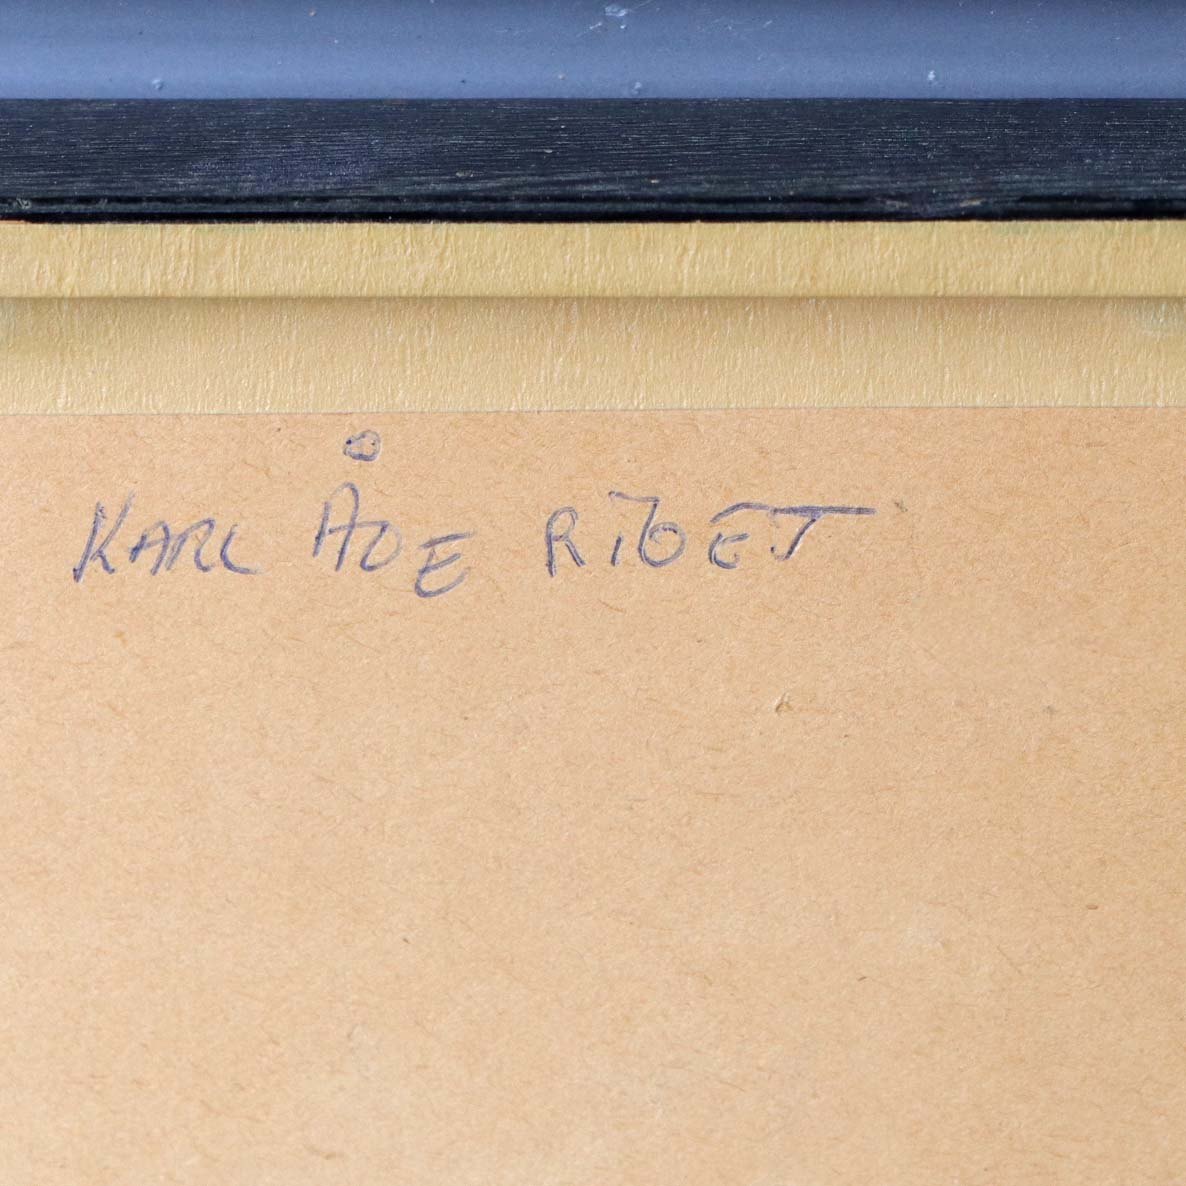 KARL ÅDE RIGET